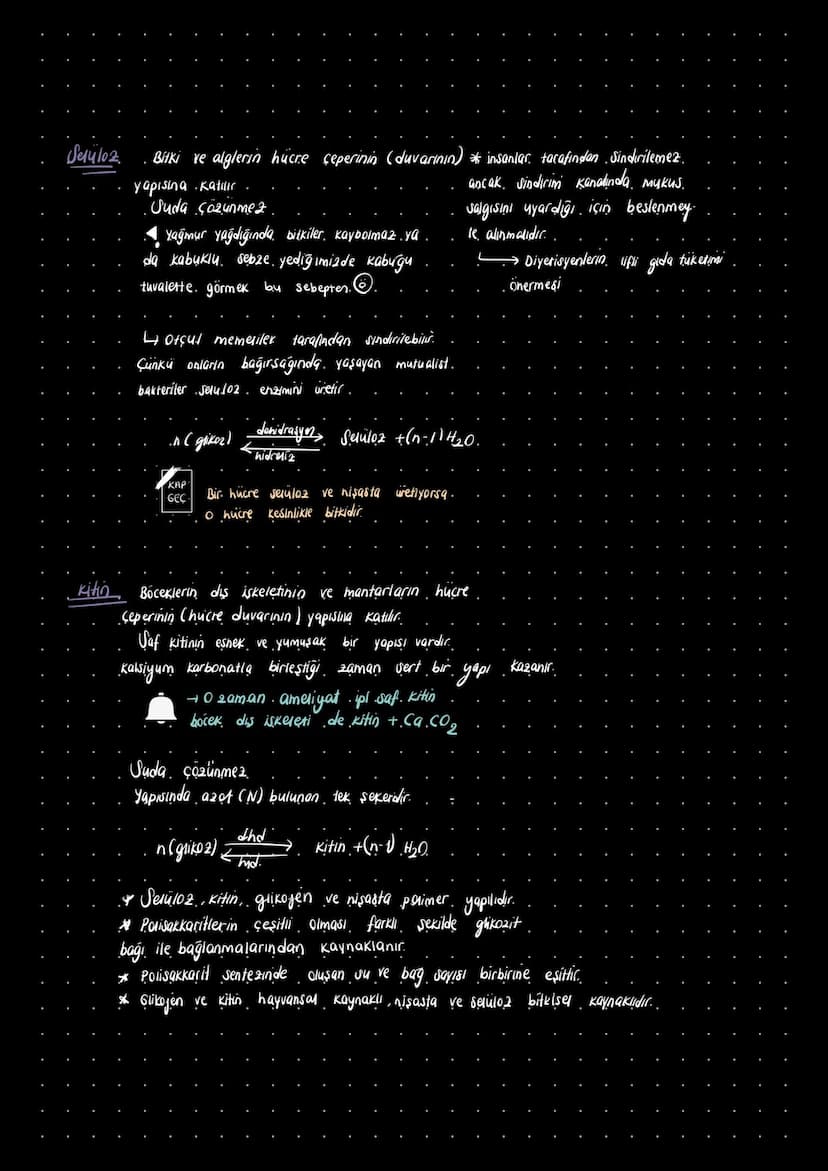 Selüloz
. Bitki ve alglerin hücre çeperinin (duvarının)
yapısına katılır
. Suda çözünmez
yağmur yağdığında bitkiler kaybolmaz ya
da kabuklu sebze yediğimizde kabuğu
tuvalette görmek bu sebepten
* insanlar tarafından sindirilemez
ancak sindirim kanalında mukus
salgısını uyardığı için beslenmey-
le alınmalıdır.
→ Diyetisyenlerin lifli gıda tüketimi
önermesi
↳ Otçul memeliler tarafından sindirilebilir.
Çünkü onların bağırsağında yaşayan mutualist
bakteriler selüloz enzimini üretir.
n(glikoz) dehidrasyon ⇄ hidroliz Selüloz +(n-1)H₂O
KAP
GEÇ
Bir hücre selüloz ve nişasta üretiyorsa
o hücre kesinlikle bitkidir.
Kitin
Böceklerin dış iskeletinin ve mantarların hücre
çeperinin (hücre duvarının) yapısına katılır.
. Saf kitinin esnek ve yumuşak bir yapısı vardır.
Kalsiyum karbonatla birleştiği zaman sert bir yapı kazanır.
→ O zaman ameliyat ipi saf kitin
böcek dış iskeleti de kitin + CaCO₂
. Suda çözünmez
. Yapısında azot (N) bulunan tek şekerdir.
n(glikoz) dhd ⇄ hid. kitin +(n-1) H₂O
* Selüloz, kitin, glikojen ve nişasta polimer yapılıdır.
* Polisakkaritlerin çeşitli olması farklı şekilde glikozit
bağı ile bağlanmalarından kaynaklanır.
* Polisakkarit sentezinde oluşan su ve bağ sayısı birbirine eşittir.
* Glikojen ve kitin hayvansal kaynaklı, nişasta ve selüloz bitkisel kaynaklıdır.